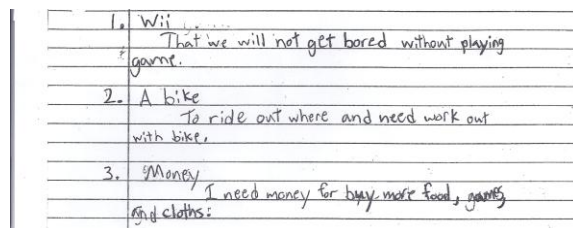 1. Wii
That we will not get bored without playing
game.
2. A bike
To ride out where and need work out
with bike.
3. Money
I need money for buy more food, games,
and cloths: